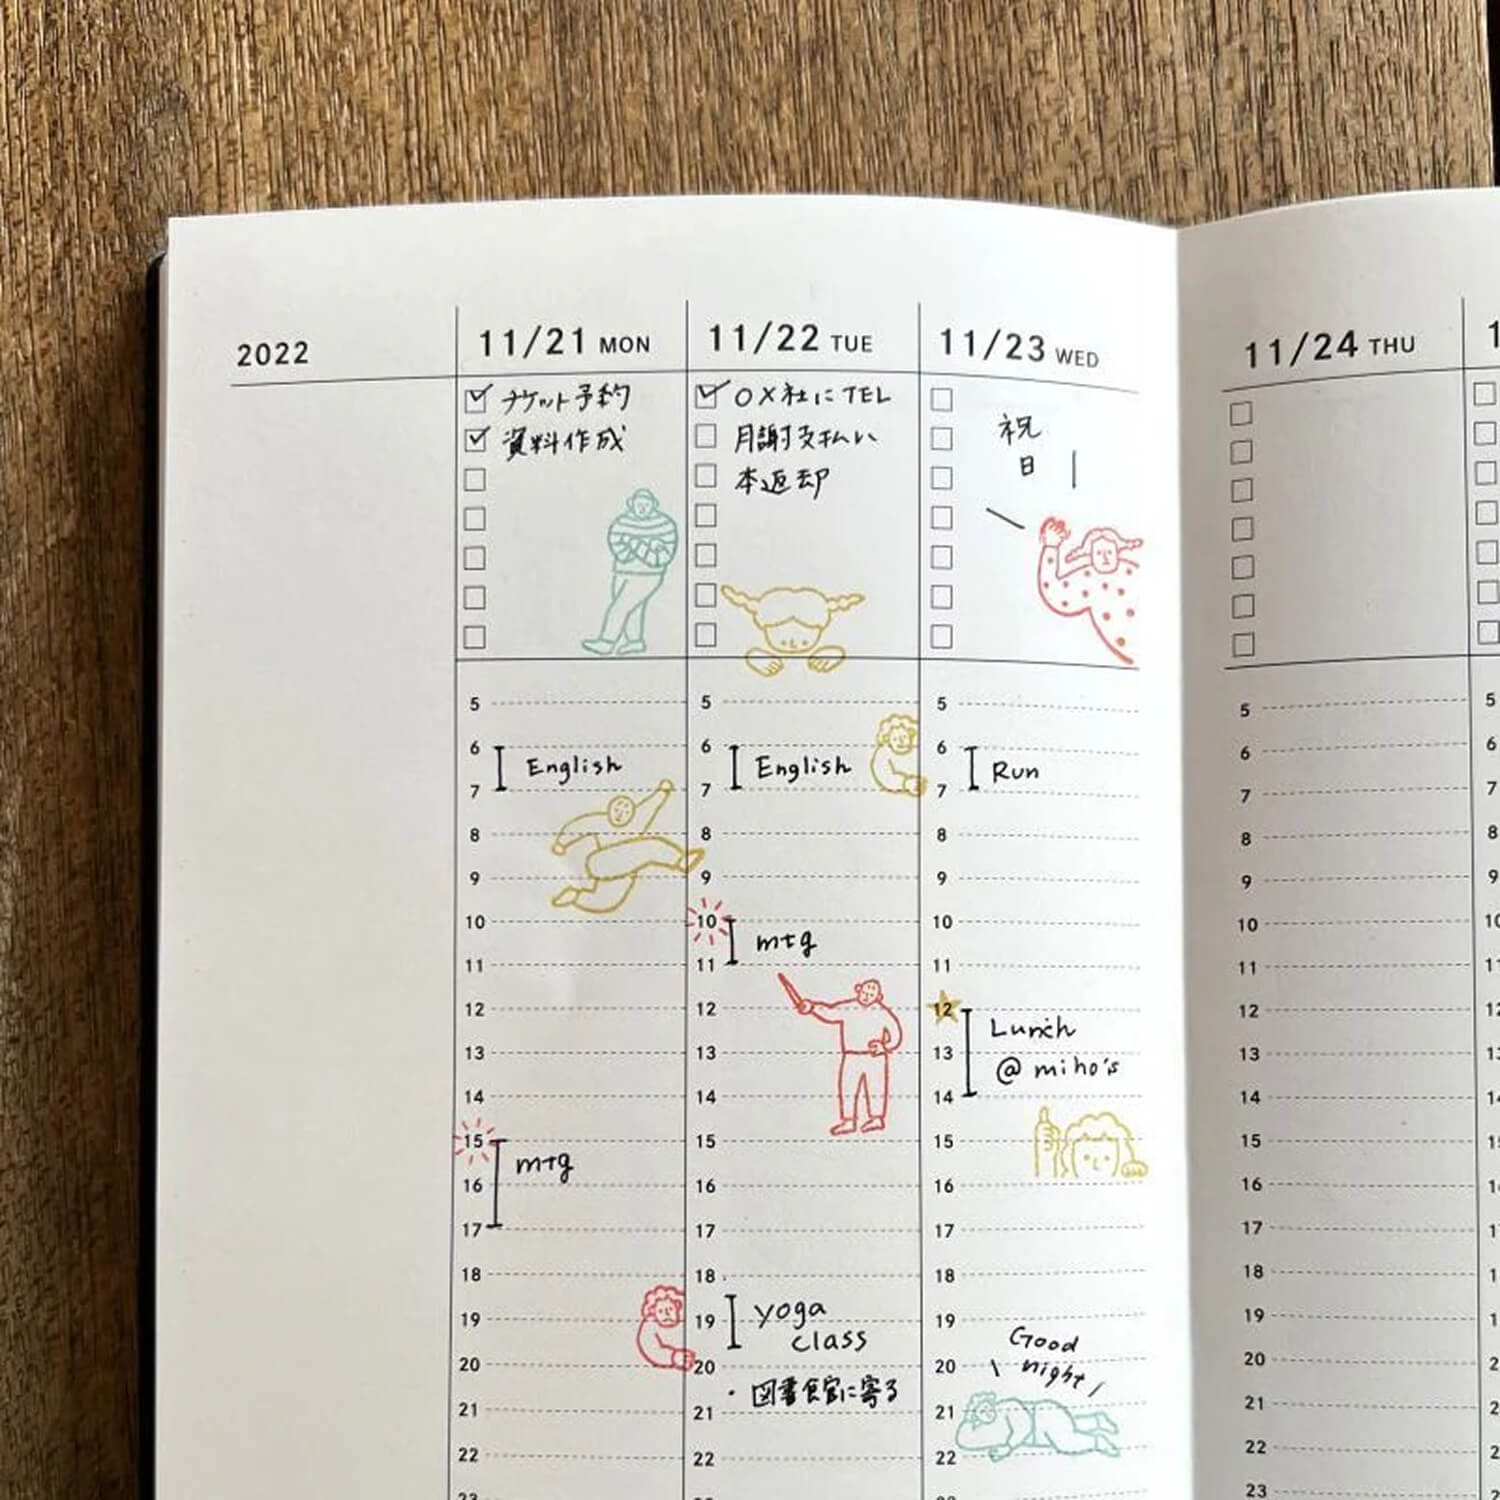 2022
11/21 MON
チケット予約
資料作成
5
6
English
7
8
9
10
11
12
13
14
15
mtg
16
17
18
19
20
21
22
23
11/22 TUE
○×社にTEL
月謝支払い
本返却
5
6
English
7
8
9
10
mtg
11
12
13
14
15
16
17
18
yoga
19
class
20
・図書館に寄る
21
22
11/23 WED
祝
日
5
6
Run
7
8
9
10
11
12
Lunch
13
@ miho's
14
15
16
17
18
19
Good
night
20
21
22
11/24 THU
5
6
7
8
9
10
11
12
13
14
15
16
17
18
19
20
21
22
23
5
6
7
8
9